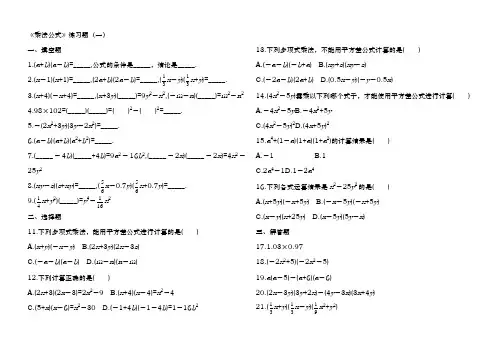 《乘法公式》练习题（一）
一、填空题
1.(a+b)(a－b)=_____,公式的条件是_____，结论是_____.
2.(x－1)(x+1)=_____,(2a+b)(2a－b)=_____,(1/3x－y)(1/3x+y)=_____.
3.(x+4)(－x+4)=_____,(x+3y)(_____)=9y²－x²,(－m－n)(_____)=m²－n²
4.98×102=(_____)(_____)=( )²－( )²=_____.
5.－(2x²+3y)(3y－2x²)=_____.
6.(a－b)(a+b)(a²+b²)=_____.
7.(_____－4b)(_____+4b)=9a²－16b²,(_____－2x)(_____－2x)=4x²－
25y²
8.(xy－z)(z+xy)=_____,(5/6x－0.7y)(5/6x+0.7y)=_____.
9.(1/4x+y²)(_____)=y⁴－1/16x²
二、选择题
11.下列多项式乘法，能用平方差公式进行计算的是( )
A.(x+y)(－x－y) B.(2x+3y)(2x－3z)
C.(－a－b)(a－b) D.(m－n)(n－m)
12.下列计算正确的是( )
A.(2x+3)(2x－3)=2x²－9 B.(x+4)(x－4)=x²－4
C.(5+x)(x－6)=x²－30 D.(－1+4b)(－1－4b)=1－16b²
13.下列多项式乘法，不能用平方差公式计算的是( )
A.(－a－b)(－b+a) B.(xy+z)(xy－z)
C.(－2a－b)(2a+b) D.(0.5x－y)(－y－0.5x)
14.(4x²－5y)需乘以下列哪个式子，才能使用平方差公式进行计算( )
A.－4x²－5yB.－4x²+5y
C.(4x²－5y)²D.(4x+5y)²
15.a⁴+(1－a)(1+a)(1+a²)的计算结果是( )
A.－1 B.1
C.2a⁴－1D.1－2a⁴
16.下列各式运算结果是x²－25y²的是( )
A.(x+5y)(－x+5y) B.(－x－5y)(－x+5y)
C.(x－y)(x+25y) D.(x－5y)(5y－x)
三、解答题
17.1.03×0.97
18.(－2x²+5)(－2x²－5)
19.a(a－5)－(a+6)(a－6)
20.(2x－3y)(3y+2x)－(4y－3x)(3x+4y)
21.(1/3x+y)(1/3x－y)(1/9x²+y²)